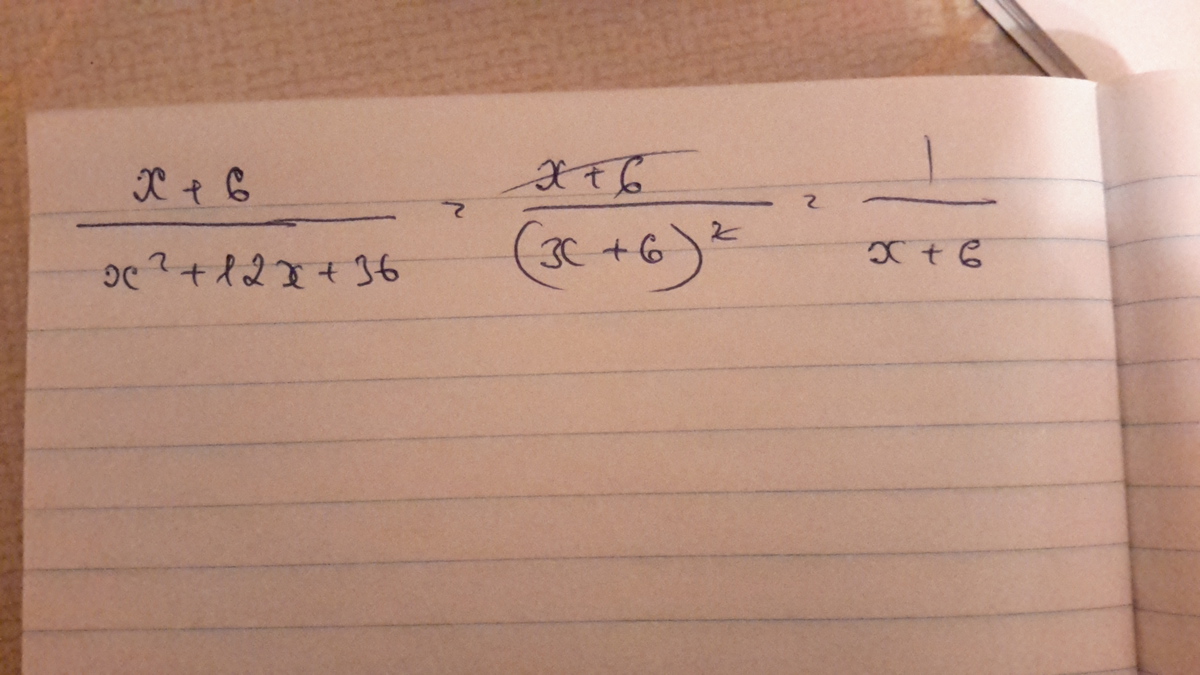 x + 6 / x² + 12x + 36 = x + 6 / (x + 6)² = 1 / x + 6